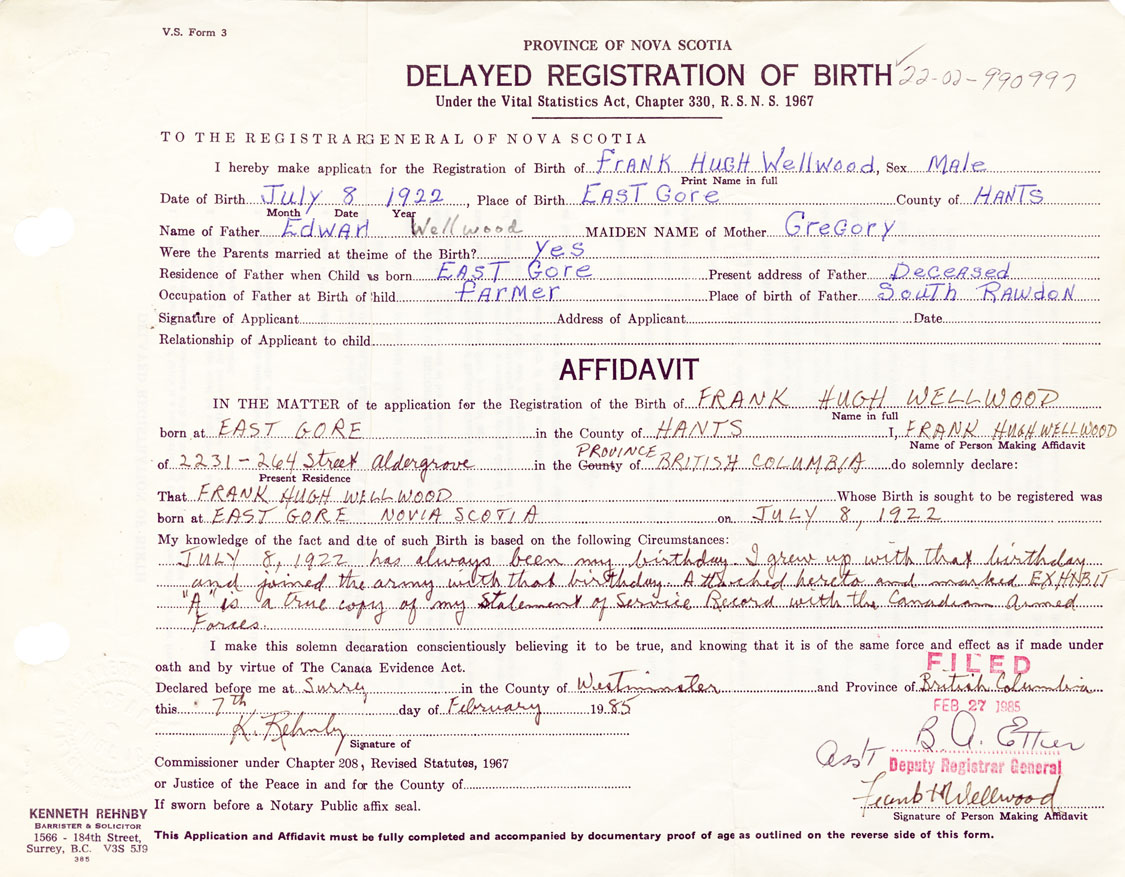 V.S. Form 3
PROVINCE OF NOVA SCOTIA
DELAYED REGISTRATION OF BIRTH 22-02-990997
Under the Vital Statistics Act, Chapter 330, R.S.N.S. 1967
TO THE REGISTRAR GENERAL OF NOVA SCOTIA
I hereby make applicatn for the Registration of Birth of FRANK HUGH Wellwood, Sex MALe
Print Name in full
Date of Birth July 8 1922, Place of Birth EAST Gore County of HANTS
Month Date Year
Name of Father Edward Wellwood MAIDEN NAME of Mother GreGory
Were the Parents married at theime of the Birth? yes
Residence of Father when Child as born EAST Gore Present address of Father Deceased
Occupation of Father at Birth of hild farmer Place of birth of Father South Rawdon
Signature of Applicant Address of Applicant Date
Relationship of Applicant to child
AFFIDAVIT
IN THE MATTER of te application for the Registration of the Birth of FRANK HUGH WELLWOOD
Name in full
born at EAST GORE in the County of HANTS I, FRANK HUGH WELLWOOD
Name of Person Making Affidavit
PROVINCE
of 2231-264 Street Aldergrove in the County of BRITISH COLUMBIA do solemnly declare:
Present Residence
That FRANK HUGH WELLWOOD Whose Birth is sought to be registered was
born at EAST GORE NOVIA SCOTIA on JULY 8, 1922
My knowledge of the fact and dte of such Birth is based on the following Circumstances:
JULY 8, 1922 has always been my birthday. I grew up with that birthday
and joined the army with that birthday. Attached hereto and marked EXHIBIT
"A" is a true copy of my Statement of Service Record with the Canadian Armed
Forces.
I make this solemn decaration conscientiously believing it to be true, and knowing that it is of the same force and effect as if made under
oath and by virtue of The Canaca Evidence Act.
FILED
Declared before me at Surrey in the County of Westminster and Province of British Columbia
this 7th day of February 1985
FEB 27 1985
K. Rehnby
Signature of
Asst B A. Etter
Deputy Registrar General
Commissioner under Chapter 208, Revised Statutes, 1967
or Justice of the Peace in and for the County of
Frank H Wellwood
If sworn before a Notary Public affix seal.
Signature of Person Making Affidavit
KENNETH REHNBY
BARRISTER & SOLICITOR
1566 - 184th Street,
Surrey, B.C. V3S 5J9
385
This Application and Affidavit must be fully completed and accompanied by documentary proof of age as outlined on the reverse side of this form.